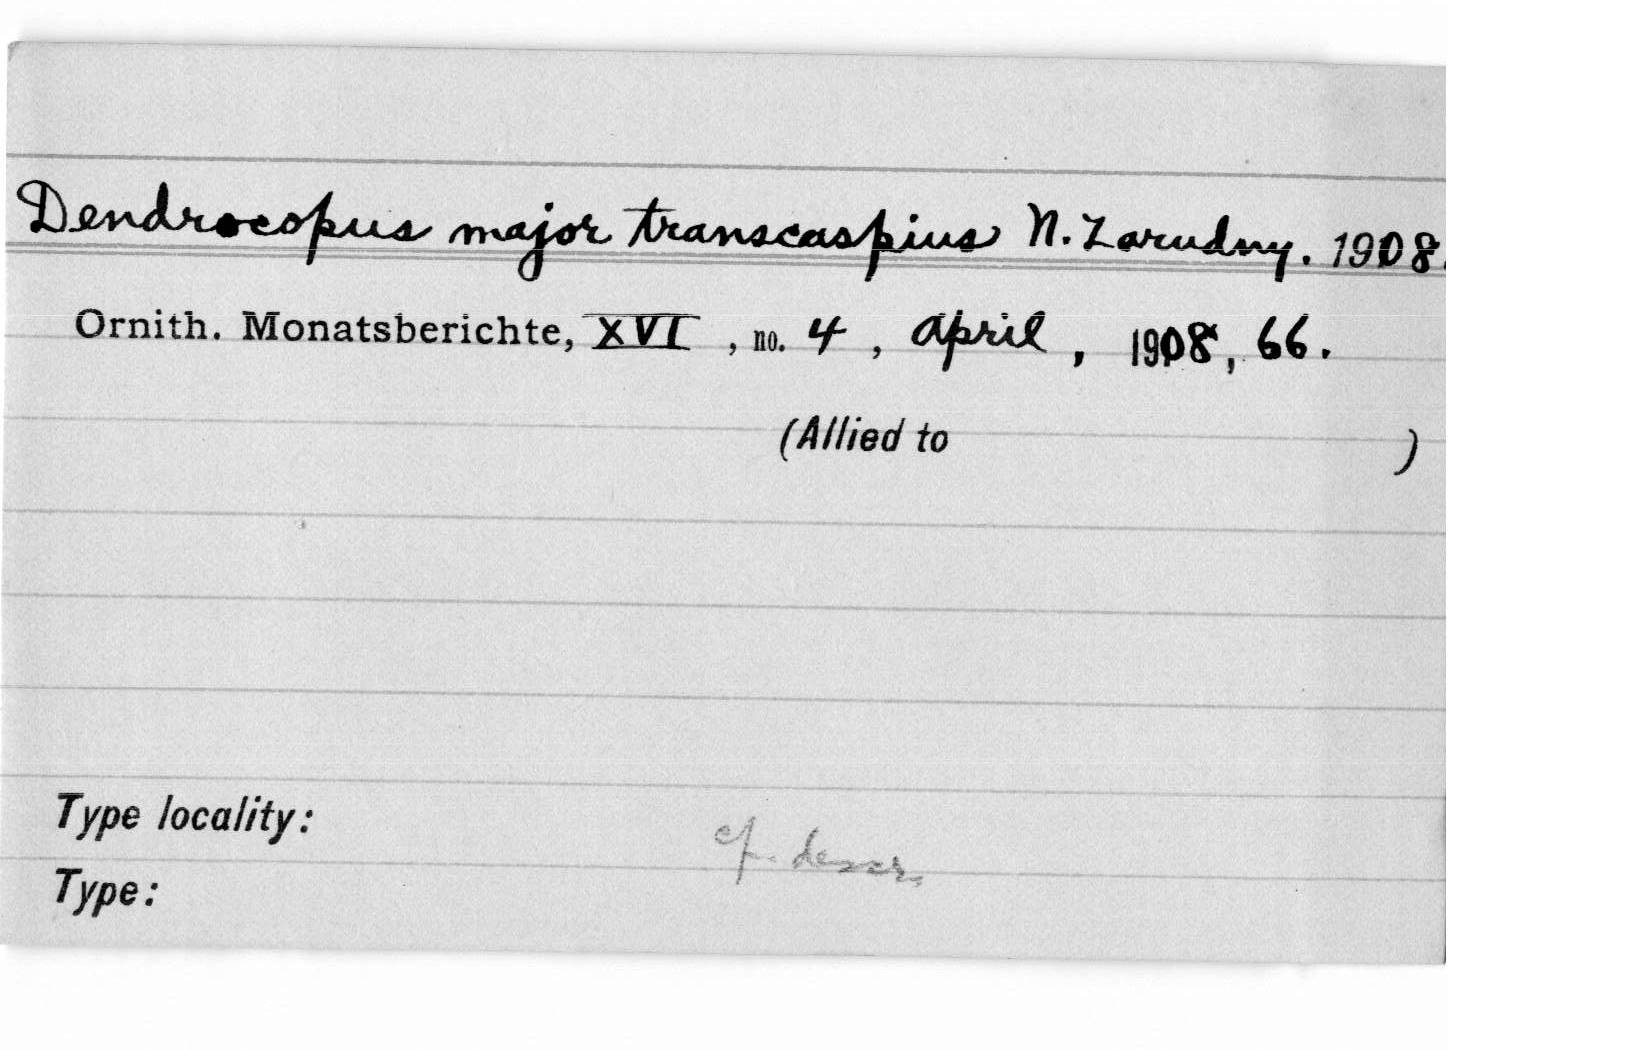 Dendrocopus major transcaspius N. Zarudny. 1908.
Ornith. Monatsberichte, XVI, no. 4, April, 1908, 66.
(Allied to )
Type locality:
cf. descr.
Type: